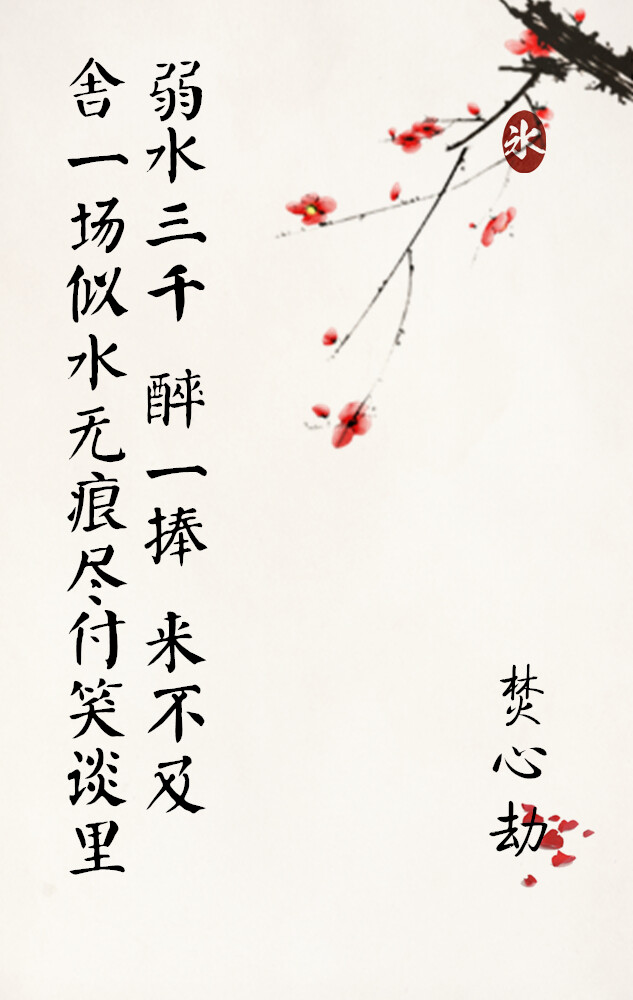 氷
焚心劫
弱水三千 醉一捧 来不及
舍一场似水无痕尽付笑谈里